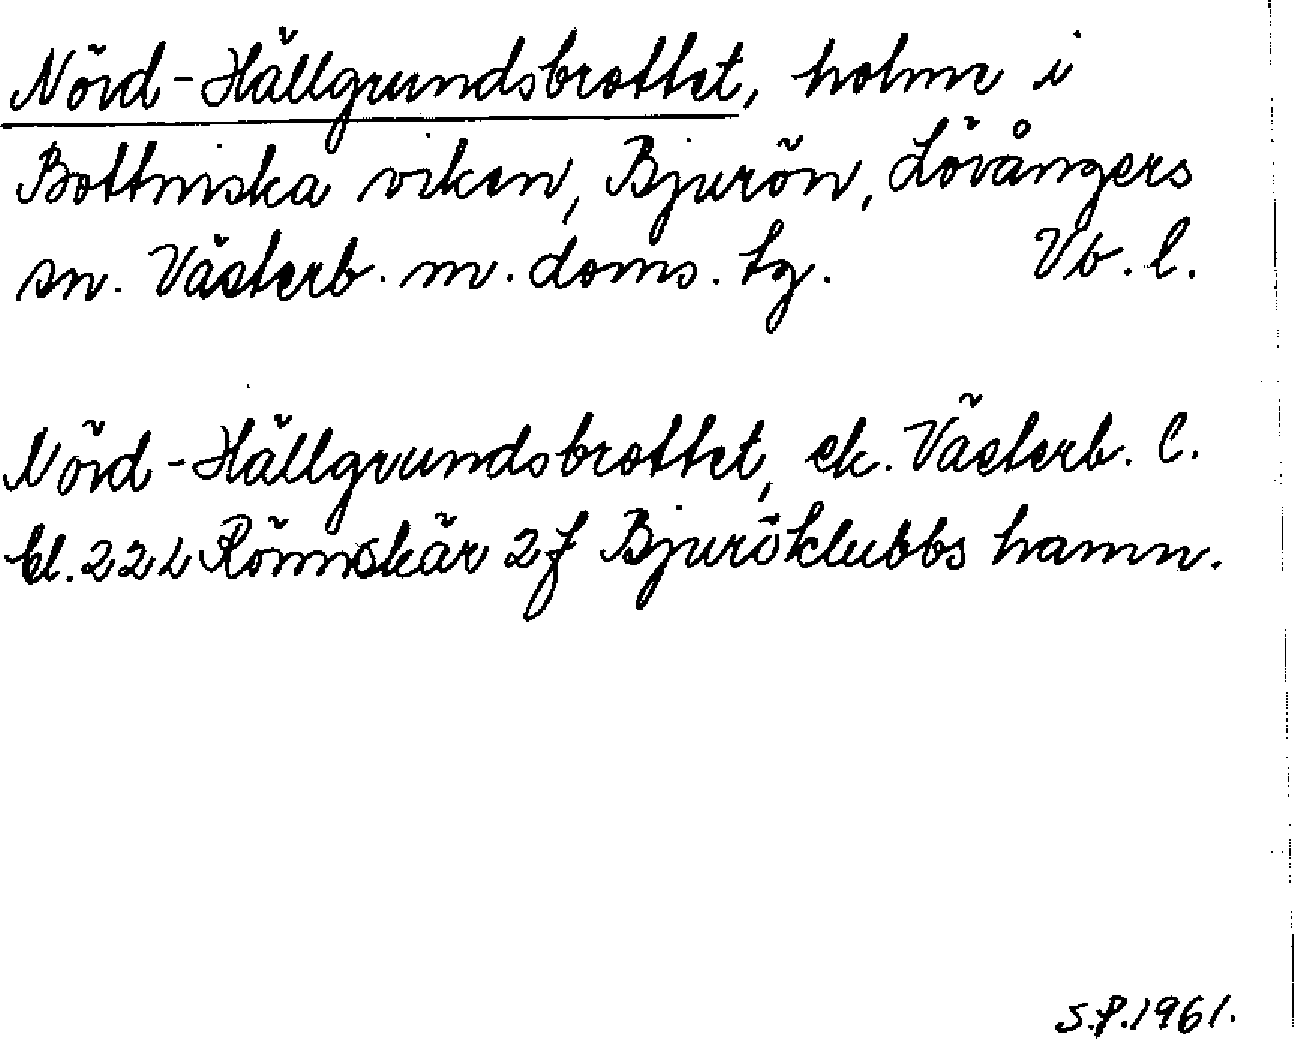 Nörd-Hällgrundsbrottet, holme i
Bottniska viken, Bjurön, Lövångers
sn. Västerb. m. doms. tg. Vb. l.
Nörd-Hällgrundsbrottet, ek. Västerb. l.
bl. 22 L Rönnskär 2 f Bjuröklubbs hamn.
S.P. 1961.